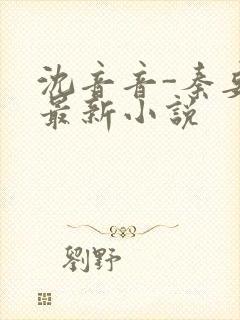 沈音音-秦
最新小说
劉野